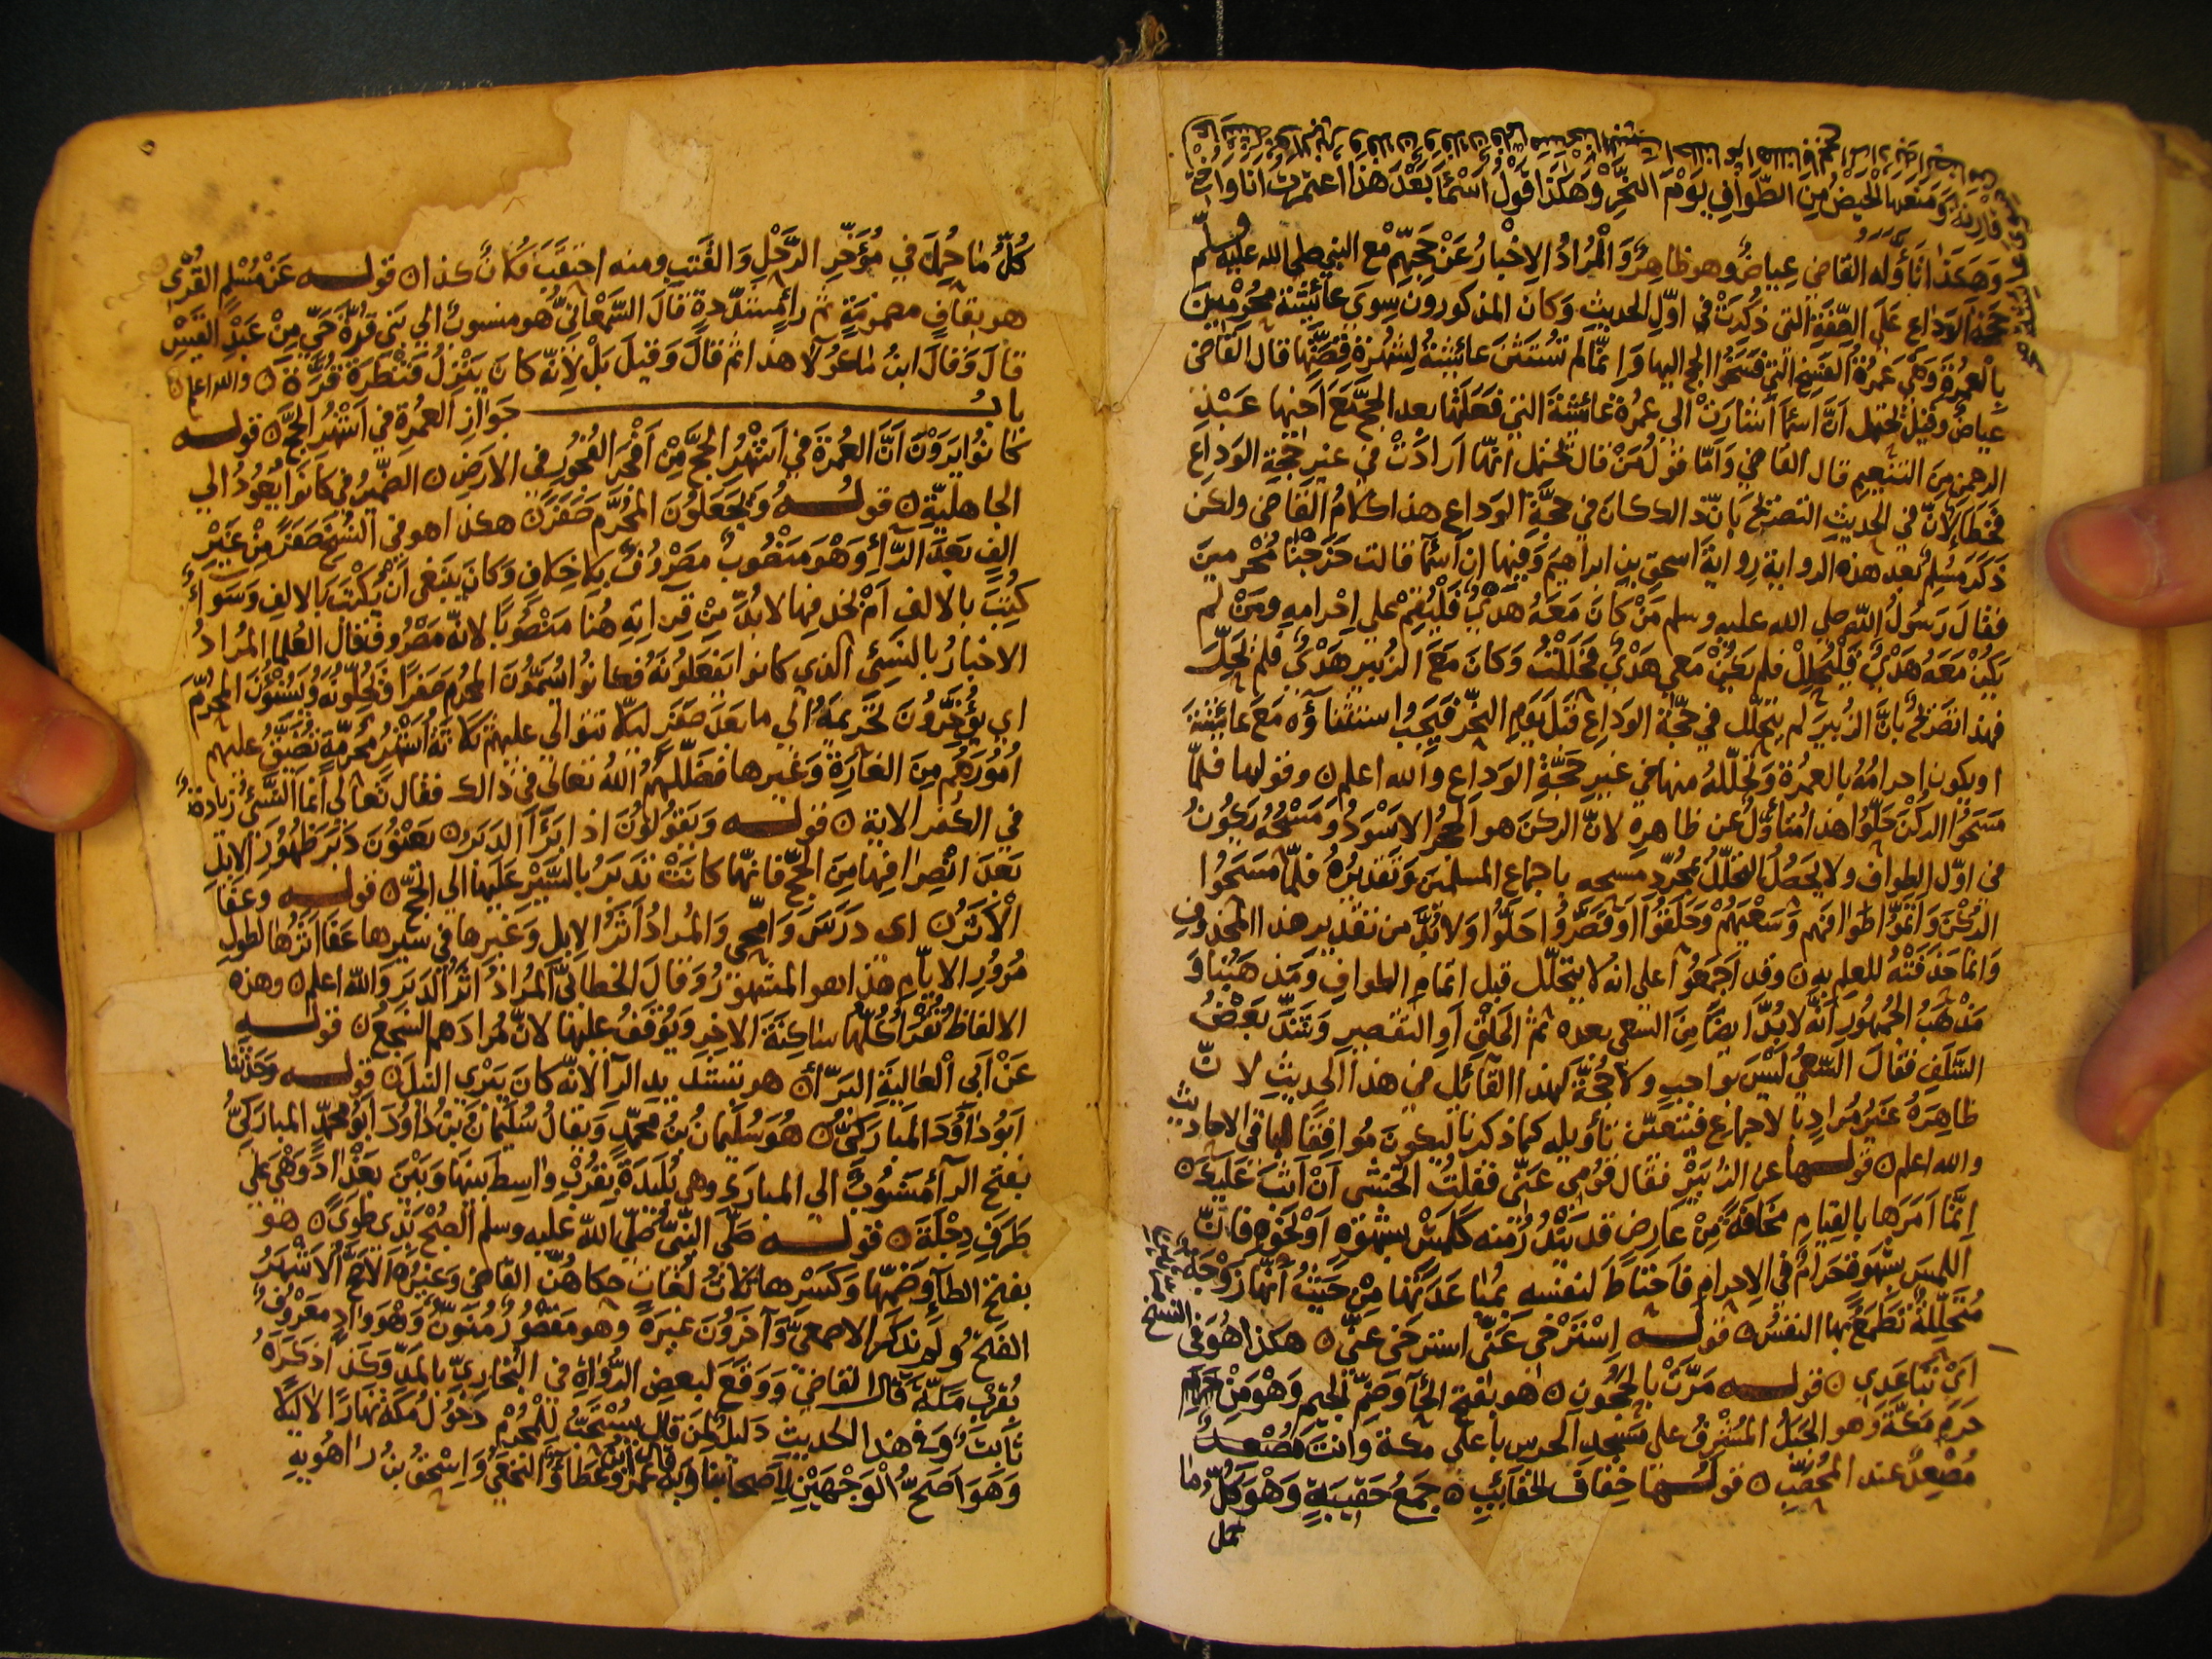 قارنة ومنعها الحيض من الطواف يوم النحر وهكذا قول أسما بعد هذا اعتمرت انا واختي
وهكذا تأوله القاضي عياض وهو ظاهر والمراد الاخبار عن حجهم مع النبي صلى الله عليه وسلم
حجة الوداع على الصفة التي ذكرت في اول الحديث وكان المذكورون سوى عائشة محرمين
بالعمرة وهي عمرة الفسخ التي فسخوا الحج اليها وانما لم تستثن عائشة لشهرة قصتها قال القاضي
عياض وقيل يحتمل ان اسما اشارت الى عمرة عائشة التي فعلتها بعد الحج مع اخيها عبد
الرحمن من التنعيم قال القاضي واما قول من قال يحتمل انها ارادت في غير حجة الوداع
فخطا لان في الحديث التصريح بان ذلك كان في حجة الوداع هذا كلام القاضي ولكن
ذكر مسلم بعد هذه الرواية رواية اسحق بن ابراهيم وفيها ان اسما قالت خرجنا محرمين
فقال رسول الله صلى الله عليه وسلم من كان معه هدي فليقم على احرامه ومن لم
يكن معه هدي فليحلل فلم يكن معي هدي فحللت وكان مع الزبير هدي فلم يحل
فهذا تصريح بان الزبير لم يتحلل في حجة الوداع قبل يوم النحر فيجب استثناؤه مع عائشة
او يكون احرامه بالعمرة وتحلله منها في غير حجة الوداع والله اعلم ن وقولها فلما
مسحوا الركن حلوا هذا متأول عن ظاهره لان الركن هو الحجر الاسود ومسحه يكون
في اول الطواف ولا يحصل التحلل بمجرد مسحه باجماع المسلمين وتقديره فلما مسحوا
الركن واتموا طوافهم وسعيهم وحلقوا او قصروا حلوا ولا بد من تقدير هذا المحذوف
وانما حذفته للعلم به ن وقد اجمعوا على انه لا يتحلل قبل اتمام الطواف ومذهبنا و
مذهب الجمهور انه لا بد ايضا من السعي بعده ثم الحلق او التقصير وشذ بعض
السلف فقال السعي ليس بواجب ولا حجة لهذا القائل في هذا الحديث لان
ظاهره غير مراد بالاجماع فتعين تأويله كما ذكرنا ليكون موافقا لباقي الاحاديث
والله اعلم ن قولها عن الزبير فقال قومي عني فقلت اتخشى ان اثب عليك ن
انما امرها بالقيام مخافة من عارض قد يندر منه كلمس بشهوة او نحوه فان
اللمس بشهوة حرام في الاحرام فاحتاط لنفسه بمباعدتها من حيث انها زوجة
متحللة تطمع بها النفس ن قوله استرخي عني استرخي عني ن هكذا هو في النسخ
اي تباعدي ن قوله مرت بالحجون ن هو بفتح الحا وضم الجيم وهو من
حرم مكة وهو الجبل المشرف على مسجد الحرس باعلى مكة وانت مصعد
مصعد عند المحصب ن قولها خفاف الحقائب ن جمع حقيبة وهو كل ما
حمل
كل ما حمل في مؤخر الرحل والقتب ومنه احتقب فلان كذا ن قوله عن مسلم القري
هو بقاف مضمومة ثم را مشددة قال السمعاني هو منسوب الى بني قرة حي من عبد القيس
قال وقال ابن ماكولا هذا ثم قال وقيل بل لانه كان ينزل قنطرة قرة ن والله اعلم ن
باب جواز العمرة في اشهر الحج ن قوله
كانوا يرون ان العمرة في اشهر الحج من افجر الفجور في الارض ن الضمير في كانوا يعود الى
الجاهلية ن قوله ويجعلون المحرم صفر ن هكذا هو في النسخ صفر من غير
الف بعد الراء وهو منصوب مصروف بلا خلاف وكان ينبغي ان يكتب بالالف وسواء
كتب بالالف ام بحذفها لا بد من قراته هنا منصوبا لانه مصروف قال العلما المراد
الاخبار بالنسيء الذي كانوا يفعلونه فكانوا يسمون المحرم صفرا ويحلونه وينسئون المحرم
اي يؤخرون تحريمه الى ما بعد صفر ليلا تتوالى عليهم ثلاثة اشهر محرمة تضيق عليهم
امورهم من الغارة وغيرها فضللهم الله تعالى في ذالك فقال تعالى انما النسيء زيادة
في الكفر الاية ن قوله ويقولون اذا برأ الدبر ن يعنون دبر ظهور الابل
بعد انصرافها من الحج فانها كانت تدبر بالسير عليها الى الحج ن قوله وعفا
الاثر ن اي درس وامحى والمراد اثر الابل وغيرها في سيرها عفا اثرها لطول
مرور الايام هذا هو المشهور وقال الخطابي المراد اثر الدبر والله اعلم ن وهذه
الالفاظ تقرا كلها ساكنة الاخر ويوقف عليها لان مرادهم السجع ن قوله
عن ابي العالية البراء ن هو بتشديد الرا لانه كان يبري النبل ن قوله وحدثنا
ابو داود المباركي ن هو سليمان بن محمد ويقال سليمان بن داود ابو محمد المباركي
بفتح الراء منسوب الى المبارك وهي بليدة بقرب واسط بينها وبين بغداد وهي على
طرف دجلة ن قوله صلى النبي صلى الله عليه وسلم الصبح بذي طوى ن هو
بفتح الطا وضمها وكسرها ثلاث لغات حكاهن القاضي وغيره الاصح الاشهر
الفتح ولم يذكر الاصمعي وآخرون غيره وهو مقصور منون وهو واد معروف
بقرب مكة قال القاضي ووقع لبعض الرواة في البخاري بالمد وكذا ذكره
ثابت وفي هذا الحديث دليل لمن قال يستحب للمحرم دخول مكة نهارا لا ليلا
وهو اصح الوجهين لاصحابنا وبه قال ابن عمر وعطا والنخعي واسحق بن راهويه